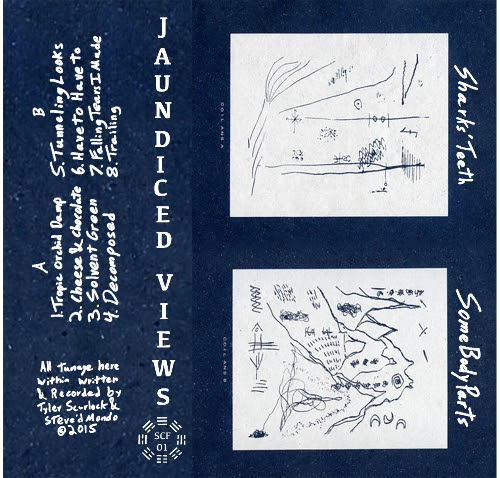 B
5. Tunneling Looks
6. Have to Have to
7. Falling Tears I Made
8 Trailing
A
1. Tropic Orchid Damp
2. Cheese & Chocolate
3. Solvent Green
4. Decomposed
All Tunage here
within written
& Recorded by
Tyler Scurlock &
Steve'd Mando
©2015
JAUNDICED VIEWS
SCF
01
COILANS A
Sharks' Teeth
COILANS B
Some Body Parts